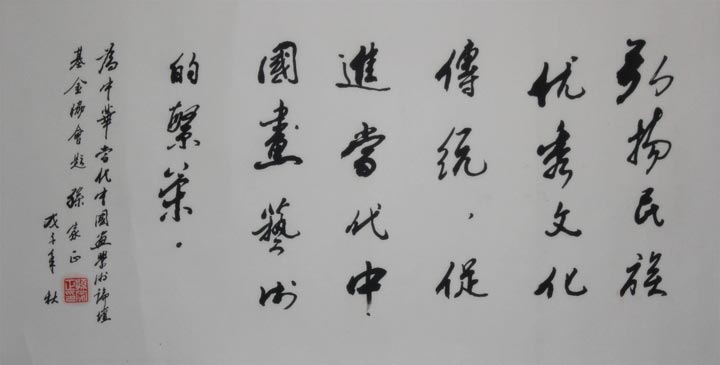 弘揚民族
优秀文化
傳統，促
進當代中
國畫藝術
的繁荣。
為中華當代中國画學術論壇
基金協會題 孫家正
戊子年秋